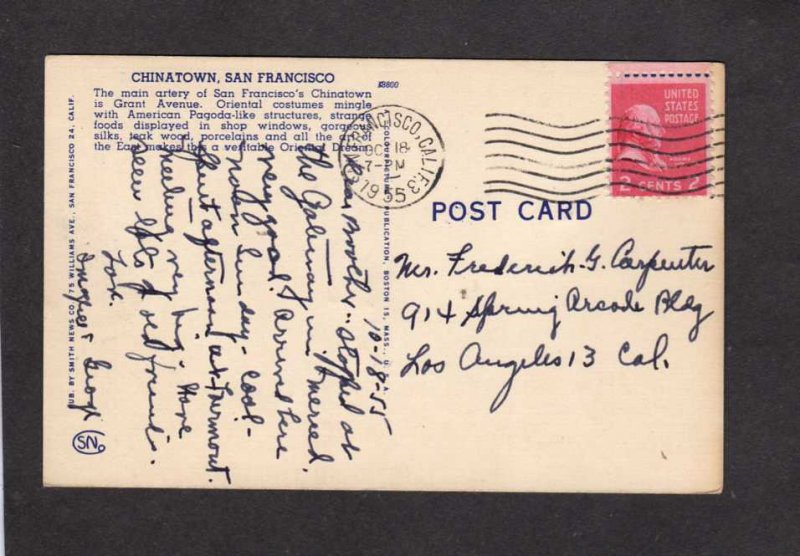 CHINATOWN, SAN FRANCISCO
K8800
The main artery of San Francisco's Chinatown
is Grant Avenue. Oriental costumes mingle
with American Pagoda-like structures, strange
foods displayed in shop windows, gorgeous
silks, teak wood, porcelains and all the art of
the East makes this a veritable Oriental Dream.
PUB. BY SMITH NEWS CO., 75 WILLIAMS AVE., SAN FRANCISCO 24, CALIF.
SN
PUBLICATION, BOSTON 15, MASS., U.S.A.
FRANCISCO, CALIF. 3
OCT 18
7 - M
1955
UNITED
STATES
POSTAGE
2 CENTS 2
POST CARD
Mr. Frederick G. Carpenter
914 Spring Arcade Bldg
Los Angeles 13 Cal.
10-18-55
Dear Brother - Stopped at
the Gateway in Merced.
very good. Arrived here
noon Sunday - cool -
Spent afternoon at Fairmount.
feeling very big - Have
seen lots of old friends.
Love.